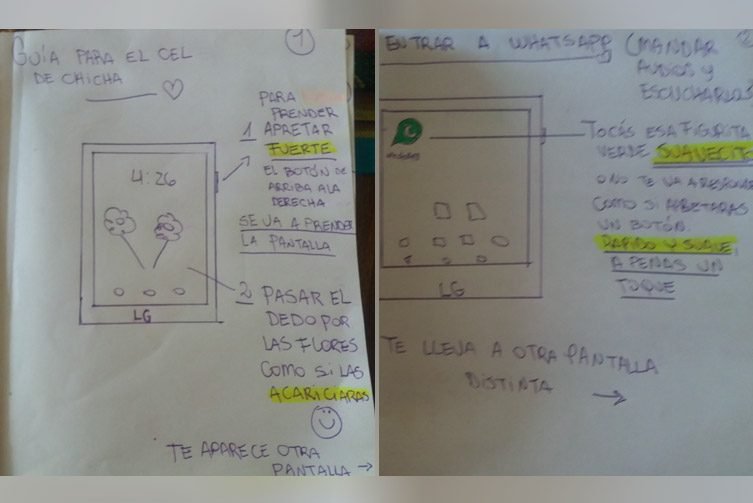 GUÍA PARA EL CEL
DE CHICHA
1
PARA
PRENDER
1 APRETAR
FUERTE
EL BOTÓN DE
ARRIBA A LA
DERECHA
SE VA A PRENDER
LA PANTALLA
4:26
LG
2 PASAR EL
DEDO POR
LAS FLORES
COMO SI LAS
ACARICIARAS
TE APARECE OTRA
PANTALLA →
ENTRAR A WHATSAPP (MANDAR
AUDIOS Y
ESCUCHARLOS
2
TOCÁS ESA FIGURITA
VERDE SUAVECITO
O NO TE VA A RESPONDER
COMO SI APRETARAS
UN BOTÓN.
RÁPIDO Y SUAVE,
APENAS UN
TOQUE
LG
TE LLEVA A OTRA PANTALLA
DISTINTA →